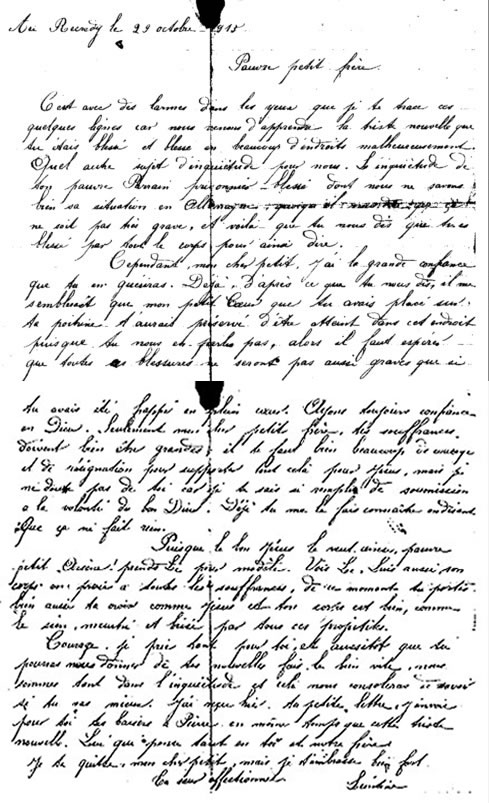 Au Rundy le 29 octobre 1915
Pauvre petit frère.
C'est avec des larmes dans les yeux que je te trace ces
quelques lignes car nous venons d'apprendre la triste nouvelle que
tu étais blessé et blessé en beaucoup d'endroits malheureusement
Quel autre sujet d'inquiétude pour nous. Le inquiétude de
ton pauvre Parrain prisonnier - blessé dont nous ne savons
bien sa situation en Allemagne
ne soit pas très grave, et voilà que tu nous dis que tu es
blessé par tout le corps pour ainsi dire.
Cependant, mon cher petit, j'ai la grande confiance
que tu en guériras. Déjà, d'après ce que tu nous dis, il me
semblerait que mon petit Cœur que tu avais placé sur
ta poitrine t'aurais préservé d'être atteint dans cet endroit
puisque tu nous en parles pas, alors il faut espérer
que toutes ces blessures ne seront pas aussi graves que si
tu avais été frappé en plein cœur. Ayons toujours confiance
en Dieu. Seulement mon cher petit frère, tes souffrances
doivent bien être grandes, il te faut bien beaucoup de courage
et de résignation pour supporter tout cela pour Jésus, mais je
ne doute pas de toi car je te sais si rempli de soumission
a la volonté du bon Dieu. Déjà tu me le fais connaître en disant
Que ça ne fait rien.
Puisque le bon Jésus le veut ainsi, pauvre
petit prends Le pour modèle. Vois Le, Lui aussi son
corps en proie à toutes les souffrances, de ce moment tu portes
bien aussi ta croix comme Jésus et ton corps est bien, comme
le sien, meurtri et brisé par tous ces projectiles.
Courage, je prie tant pour toi, et aussitôt que tu
pourras nous donner de tes nouvelles fais le bien vite, nous
sommes tant dans l'inquiétude et celà nous consolera de savoir
si tu vas mieux. J'ai reçu hier ta petite lettre, j'envoie
pour toi tes baisers à Pierre en même temps que cette triste
nouvelle. Lui qui pense tant en toi et notre frère
Je te quitte, mon cher petit, mais je t'embrasse bien fort.
Ta sœur affectionnée